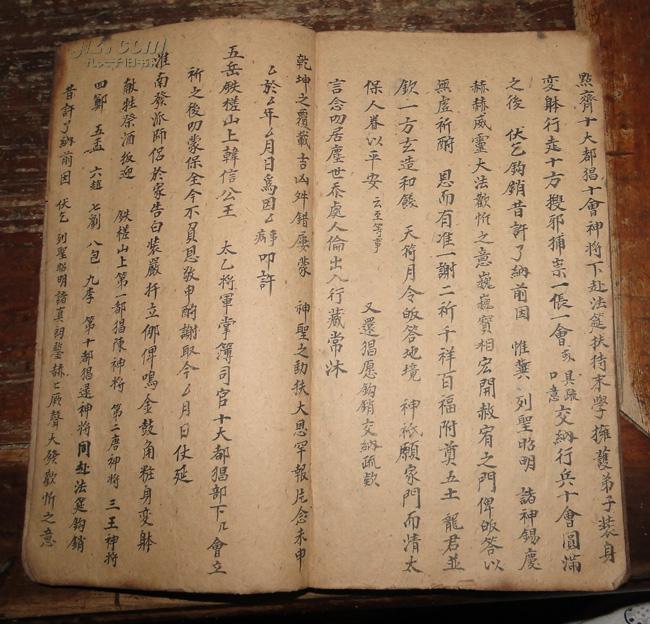 點齊十大都猖十會神将下赴法筵扶持末學擁護弟子裝身
変躰行走十方搜邪捕祟一張一會具疏口意交納行兵十會圓滿
之後 伏乞鈎銷昔許了納前因 惟冀列聖昭明 諸神锡慶
赫赫威靈大法歡忻之意巍巍寳相宏開赦宥之門俾皈答以
無虛祈酧 恩而有准一謝二祈千祥百福附奠五土龍君並
欽一方玄造和 天符月令皈答地境 神祇願家門而清太
保人眷以平安 云至等事 又還猖愿鈎銷交納疏欵
言念叨居塵世忝處人倫出入行藏常沐
乾坤之覆載吉凶舛錯屢蒙 神聖之助扶大恩罕報片念未申
厶於厶年厶月日爲因厶事病叩許
五岳鉄槎山上韓信公王 太乙将軍掌簿司官十大都猖部下几會立
祈之後叨蒙保全今不負恩敬申酧謝取今厶月日仗延
淮南發派師侣於家告白装嚴扦立 俾鳴金鼓角粧身変躰
献牲祭酒扳迎 鉄槎山上第一部猖陳神将 第二唐神将 三王神将
四鄭 五孟 六趙 七劉 八包 九李 第十都猖還神将同赴法筵鈎銷
昔許了納前因 伏乞 列聖昭明諸真洞鑒赫七厥聲大錫歡忻之意